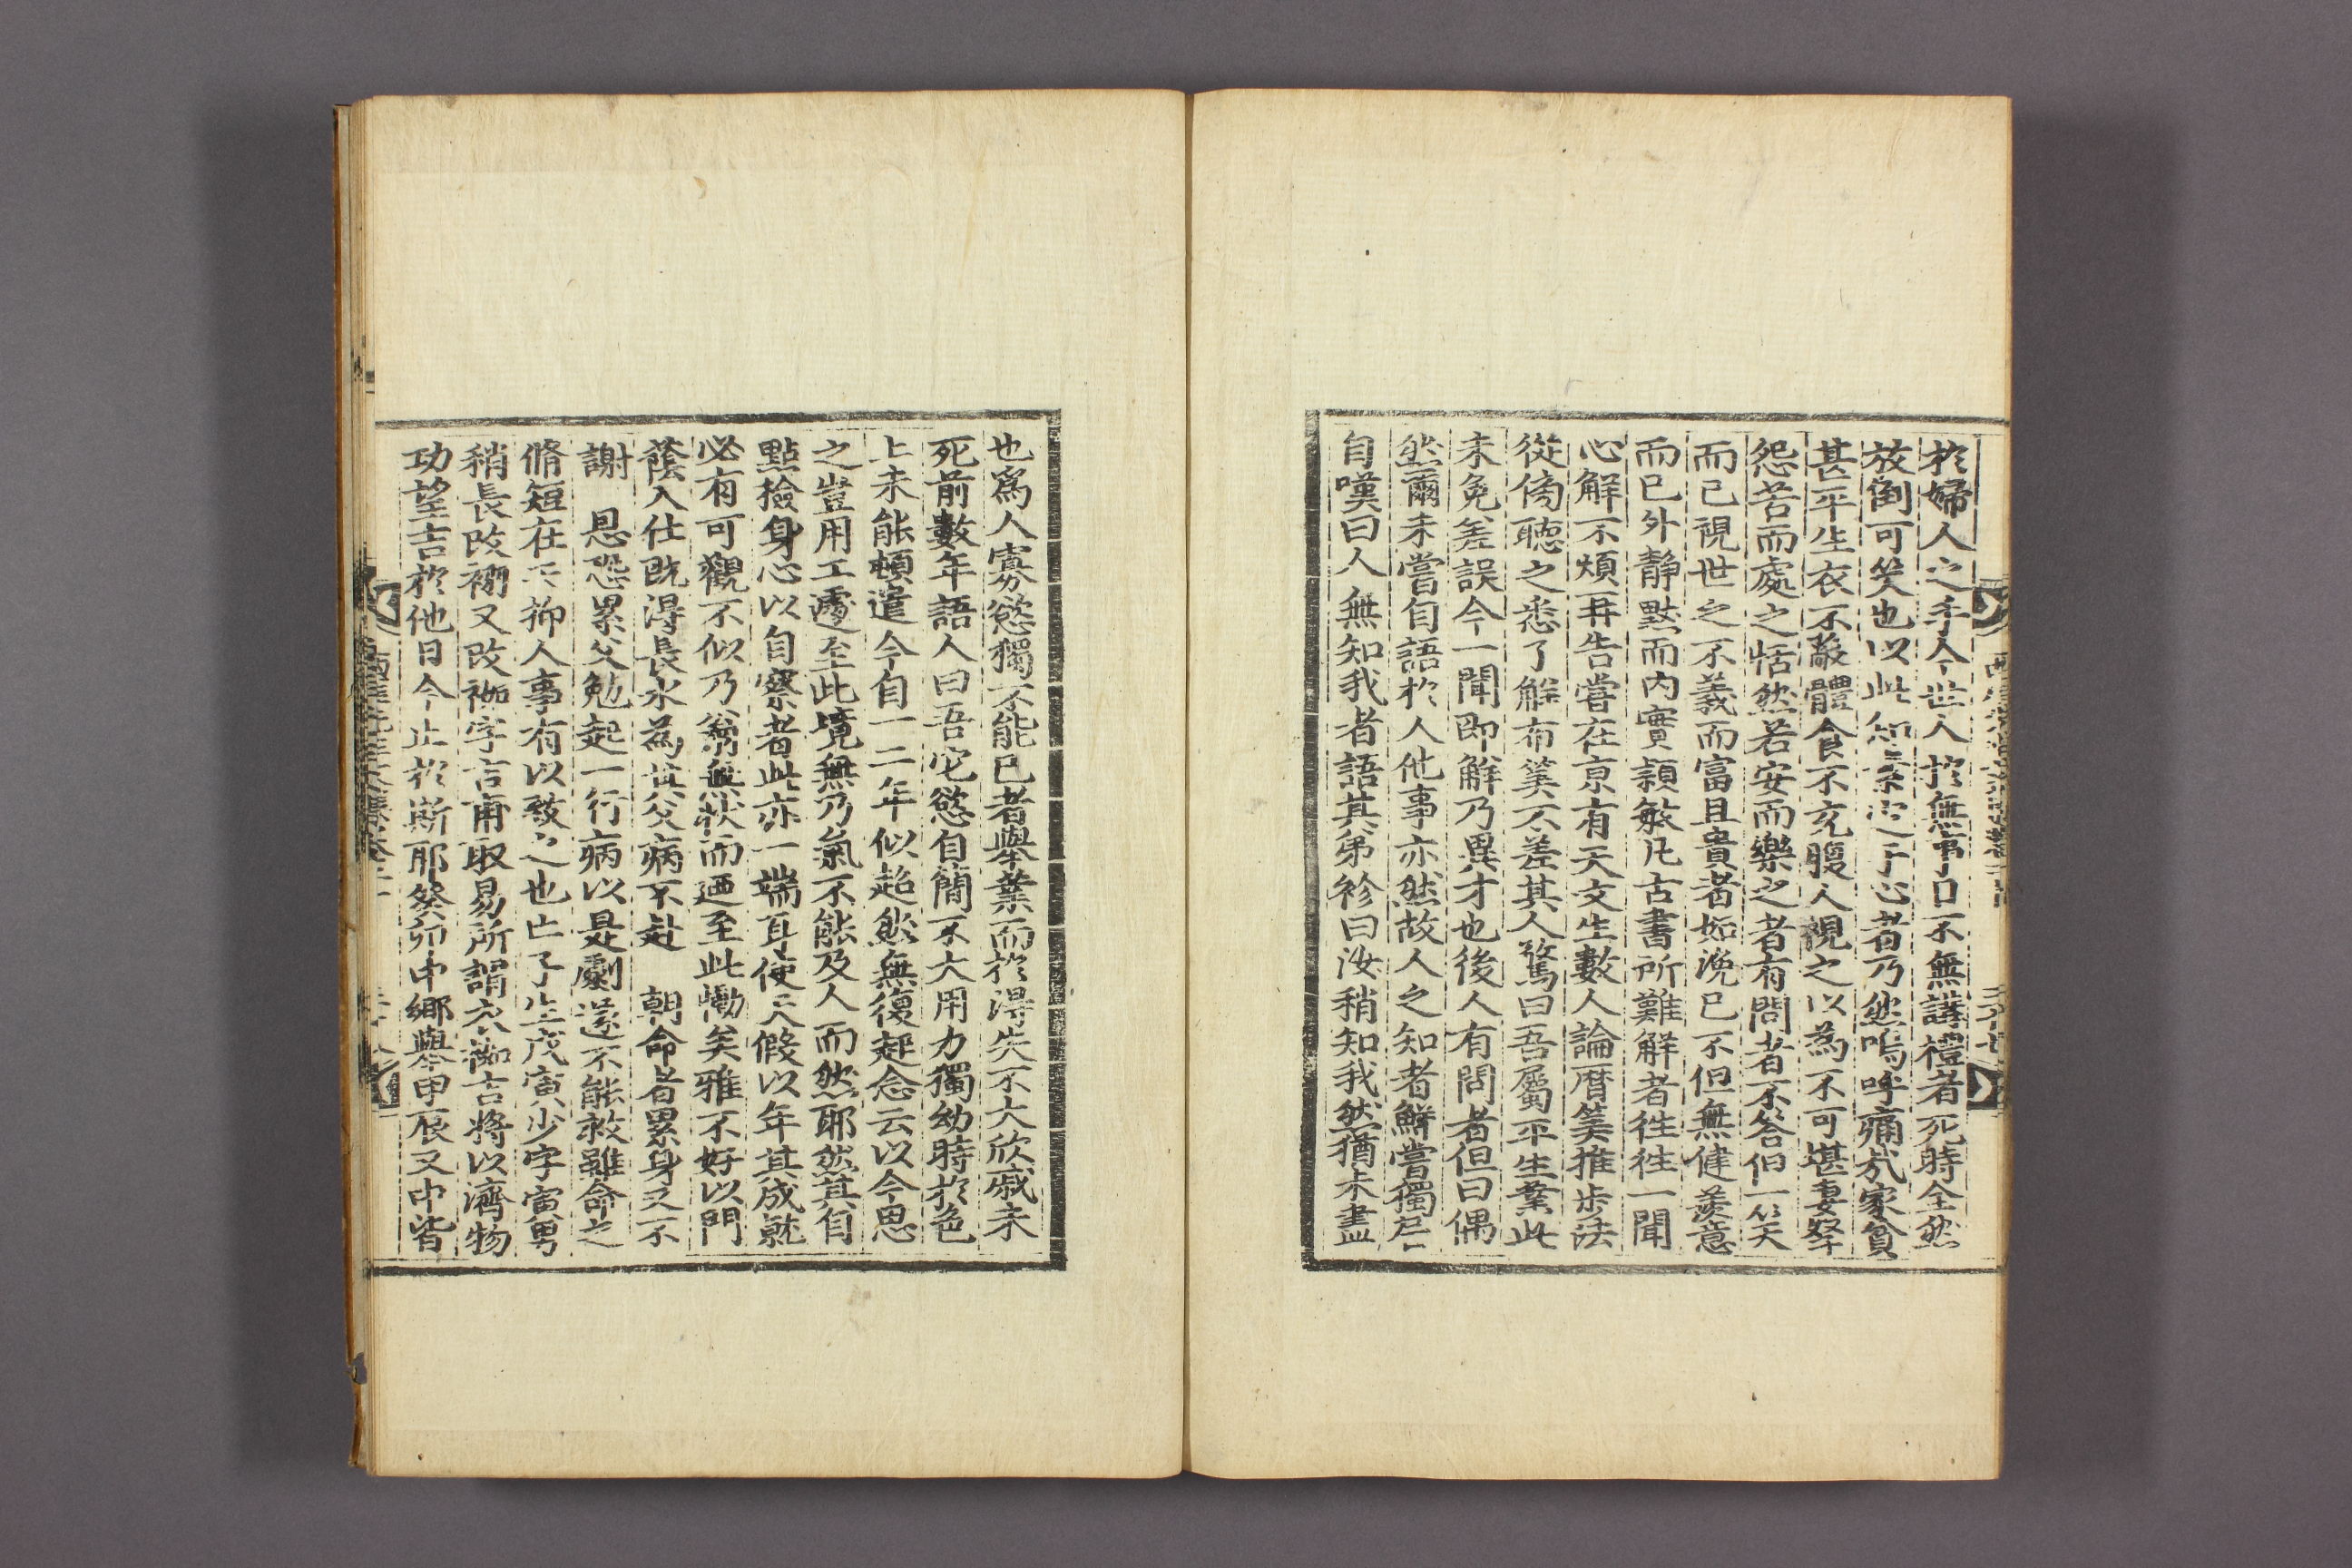 於婦人之手今世人於無事日不無講禮者死時全然
放倒可笑也以此知素定于心者乃然嗚呼痛哉家貧
甚平生衣不蔽體食不充腹人視之以為不可堪妻孥
怨苦而處之恬然若安而樂之者有問者不答但一笑
而已視世之不義而富且貴者如浼已不但無健羨意
而已外靜默而內實穎敏凡古書所難解者徃徃一聞
心解不煩再告嘗在京有天文生數人論曆筭推步法
從傍聽之悉了解布筭不差其人驚曰吾屬平生業此
未免差誤今一聞即解乃異才也後人有問者但曰偶
然爾未嘗自語於人他事亦然故人之知者鮮嘗獨居
自嘆曰人無知我者語其弟袗曰汝稍知我然猶未盡
也爲人寡慾獨不能已者擧業而於得失不大欣戚未
死前數年語人曰吾它慾自簡不大用力獨幼時於色
上未能頓遣今自一二年似超然無復起念云以今思
之豈用工處至此境無乃氣不能及人而然耶然其自
點撿身心以自察者此亦一端耳使天假以年其成就
必有可觀不似乃翁無狀而廼至此慟矣雅不好以門
蔭入仕旣得長水爲其父病不赴 朝命者累身又不
謝 恩恐累父勉起一行病以是劇遂不能救雖命之
脩短在天抑人事有以致之也亡子生戊寅少字寅男
稍長改衻又改袽字吉甫取易所謂衣袽吉將以濟物
功望吉於他日今止於斯耶癸卯中鄉擧甲辰又中皆